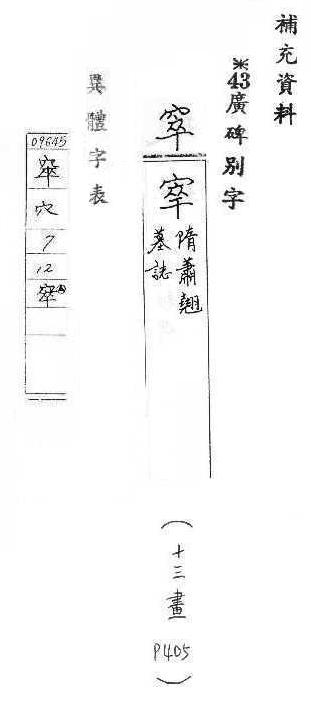 補充資料
※43廣碑別字
窣
隋蕭翹
墓誌
(十三畫 P405)
異體字表
09645
穴
7
12